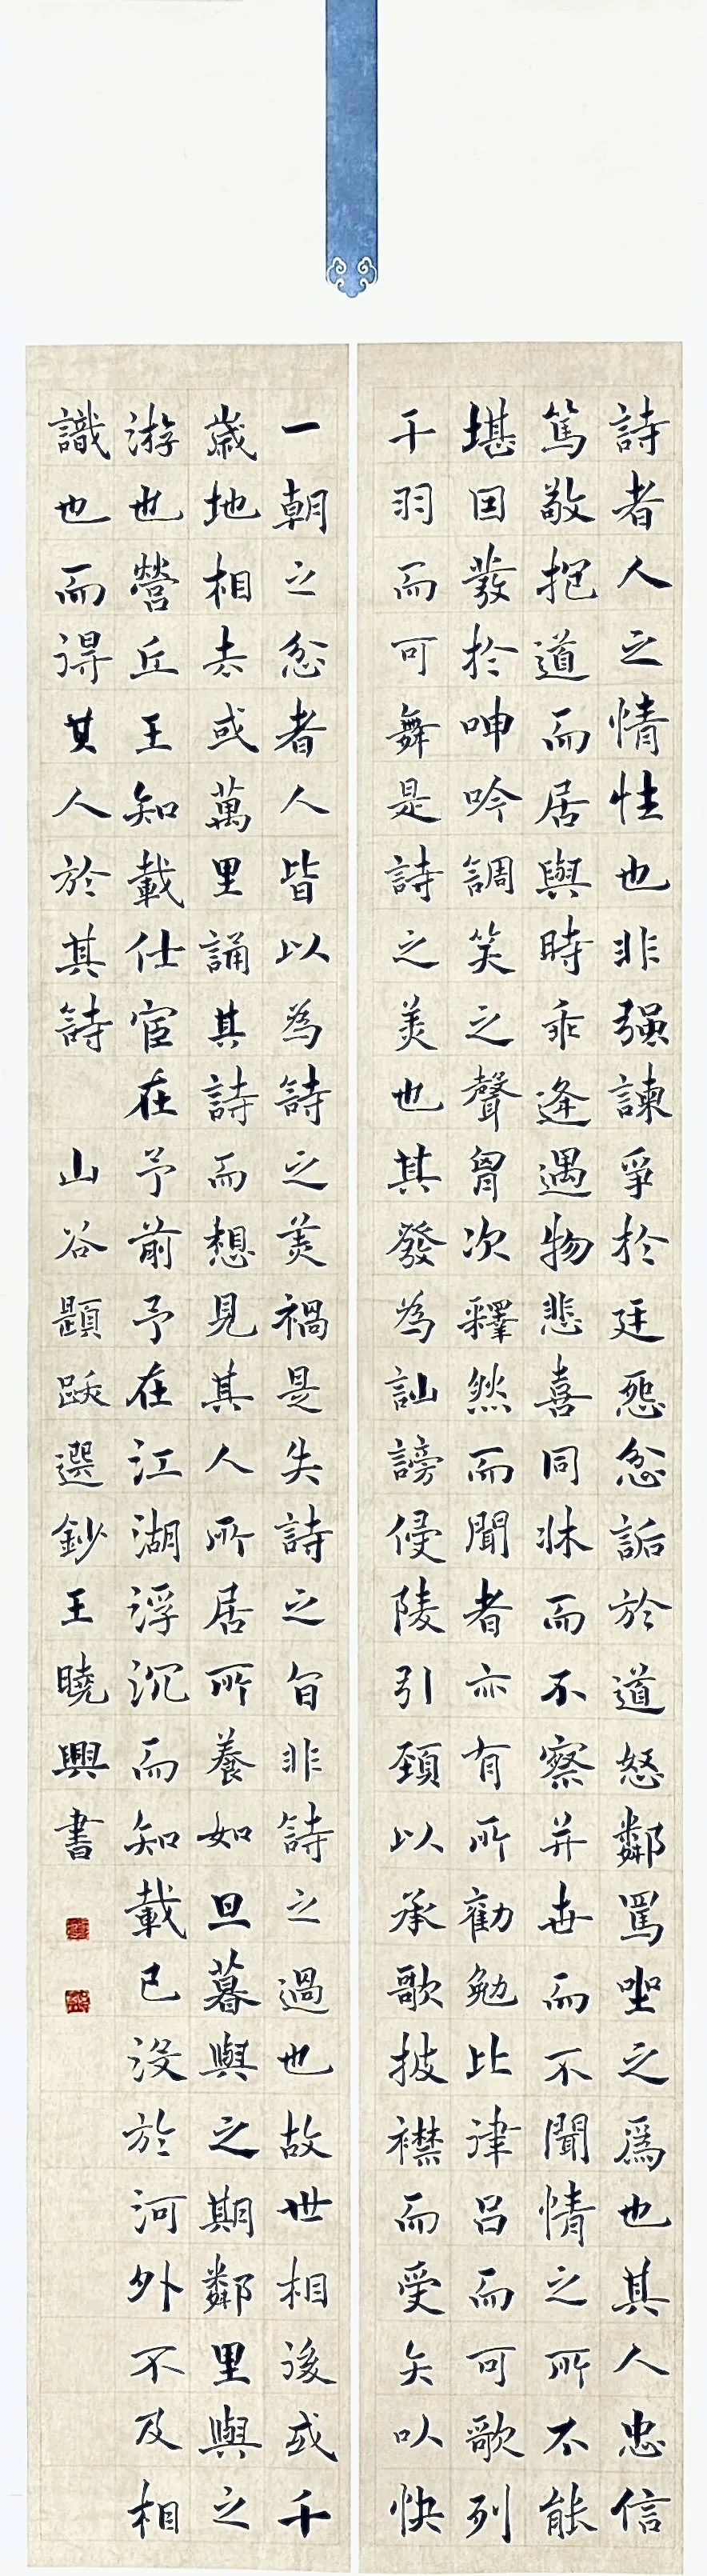 詩者人之情性也非强諫爭於廷怨忿詬於道怒鄰罵坐之爲也其人忠信
篤敬抱道而居與時乖逢遇物悲喜同牀而不察并世而不聞情之所不能
堪因發於呻吟調笑之聲胷次釋然而聞者亦有所勸勉比律呂而可歌列
干羽而可舞是詩之美也其發為訕謗侵陵引頸以承戈披襟而受矢以快
一朝之忿者人皆以為詩之美禍是失詩之旨非詩之過也故世相後或千
歲地相去或萬里誦其詩而想見其人所居所養如旦暮與之期鄰里與之
游也營丘王知載仕宦在予前予在江湖浮沉而知載已沒於河外不及相
識也而得其人於其詩 山谷題跋選鈔王曉興書